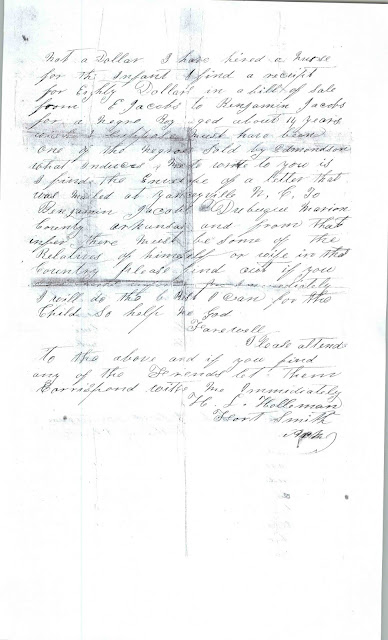 Not a Dollar I have hired a Nurse
for the Infant I find a receipt
for Eighty Dollars in a bill of Sale
from E Jacobs to Benjamin Jacobs
for a Negro Boy aged about 14 years
must have been
one of the Negros Sold by Edmondson
what induces Me to write to you is
I find the Envelope of a letter that
was mailed at Yanceyville N. C. To
Benjamin Jacobs Dubuque Marion
County Arkansas and from that
infer there must be Some of the
Relatives of himself or wife in that
Country please find out if you
immediately
I will do the best I can for the
Child So help me god
Farewell
Please attend
to the above and if you find
any of the Friends let them
Correspond with Me Immediately
H. L. Holleman
Fort Smith
Ark